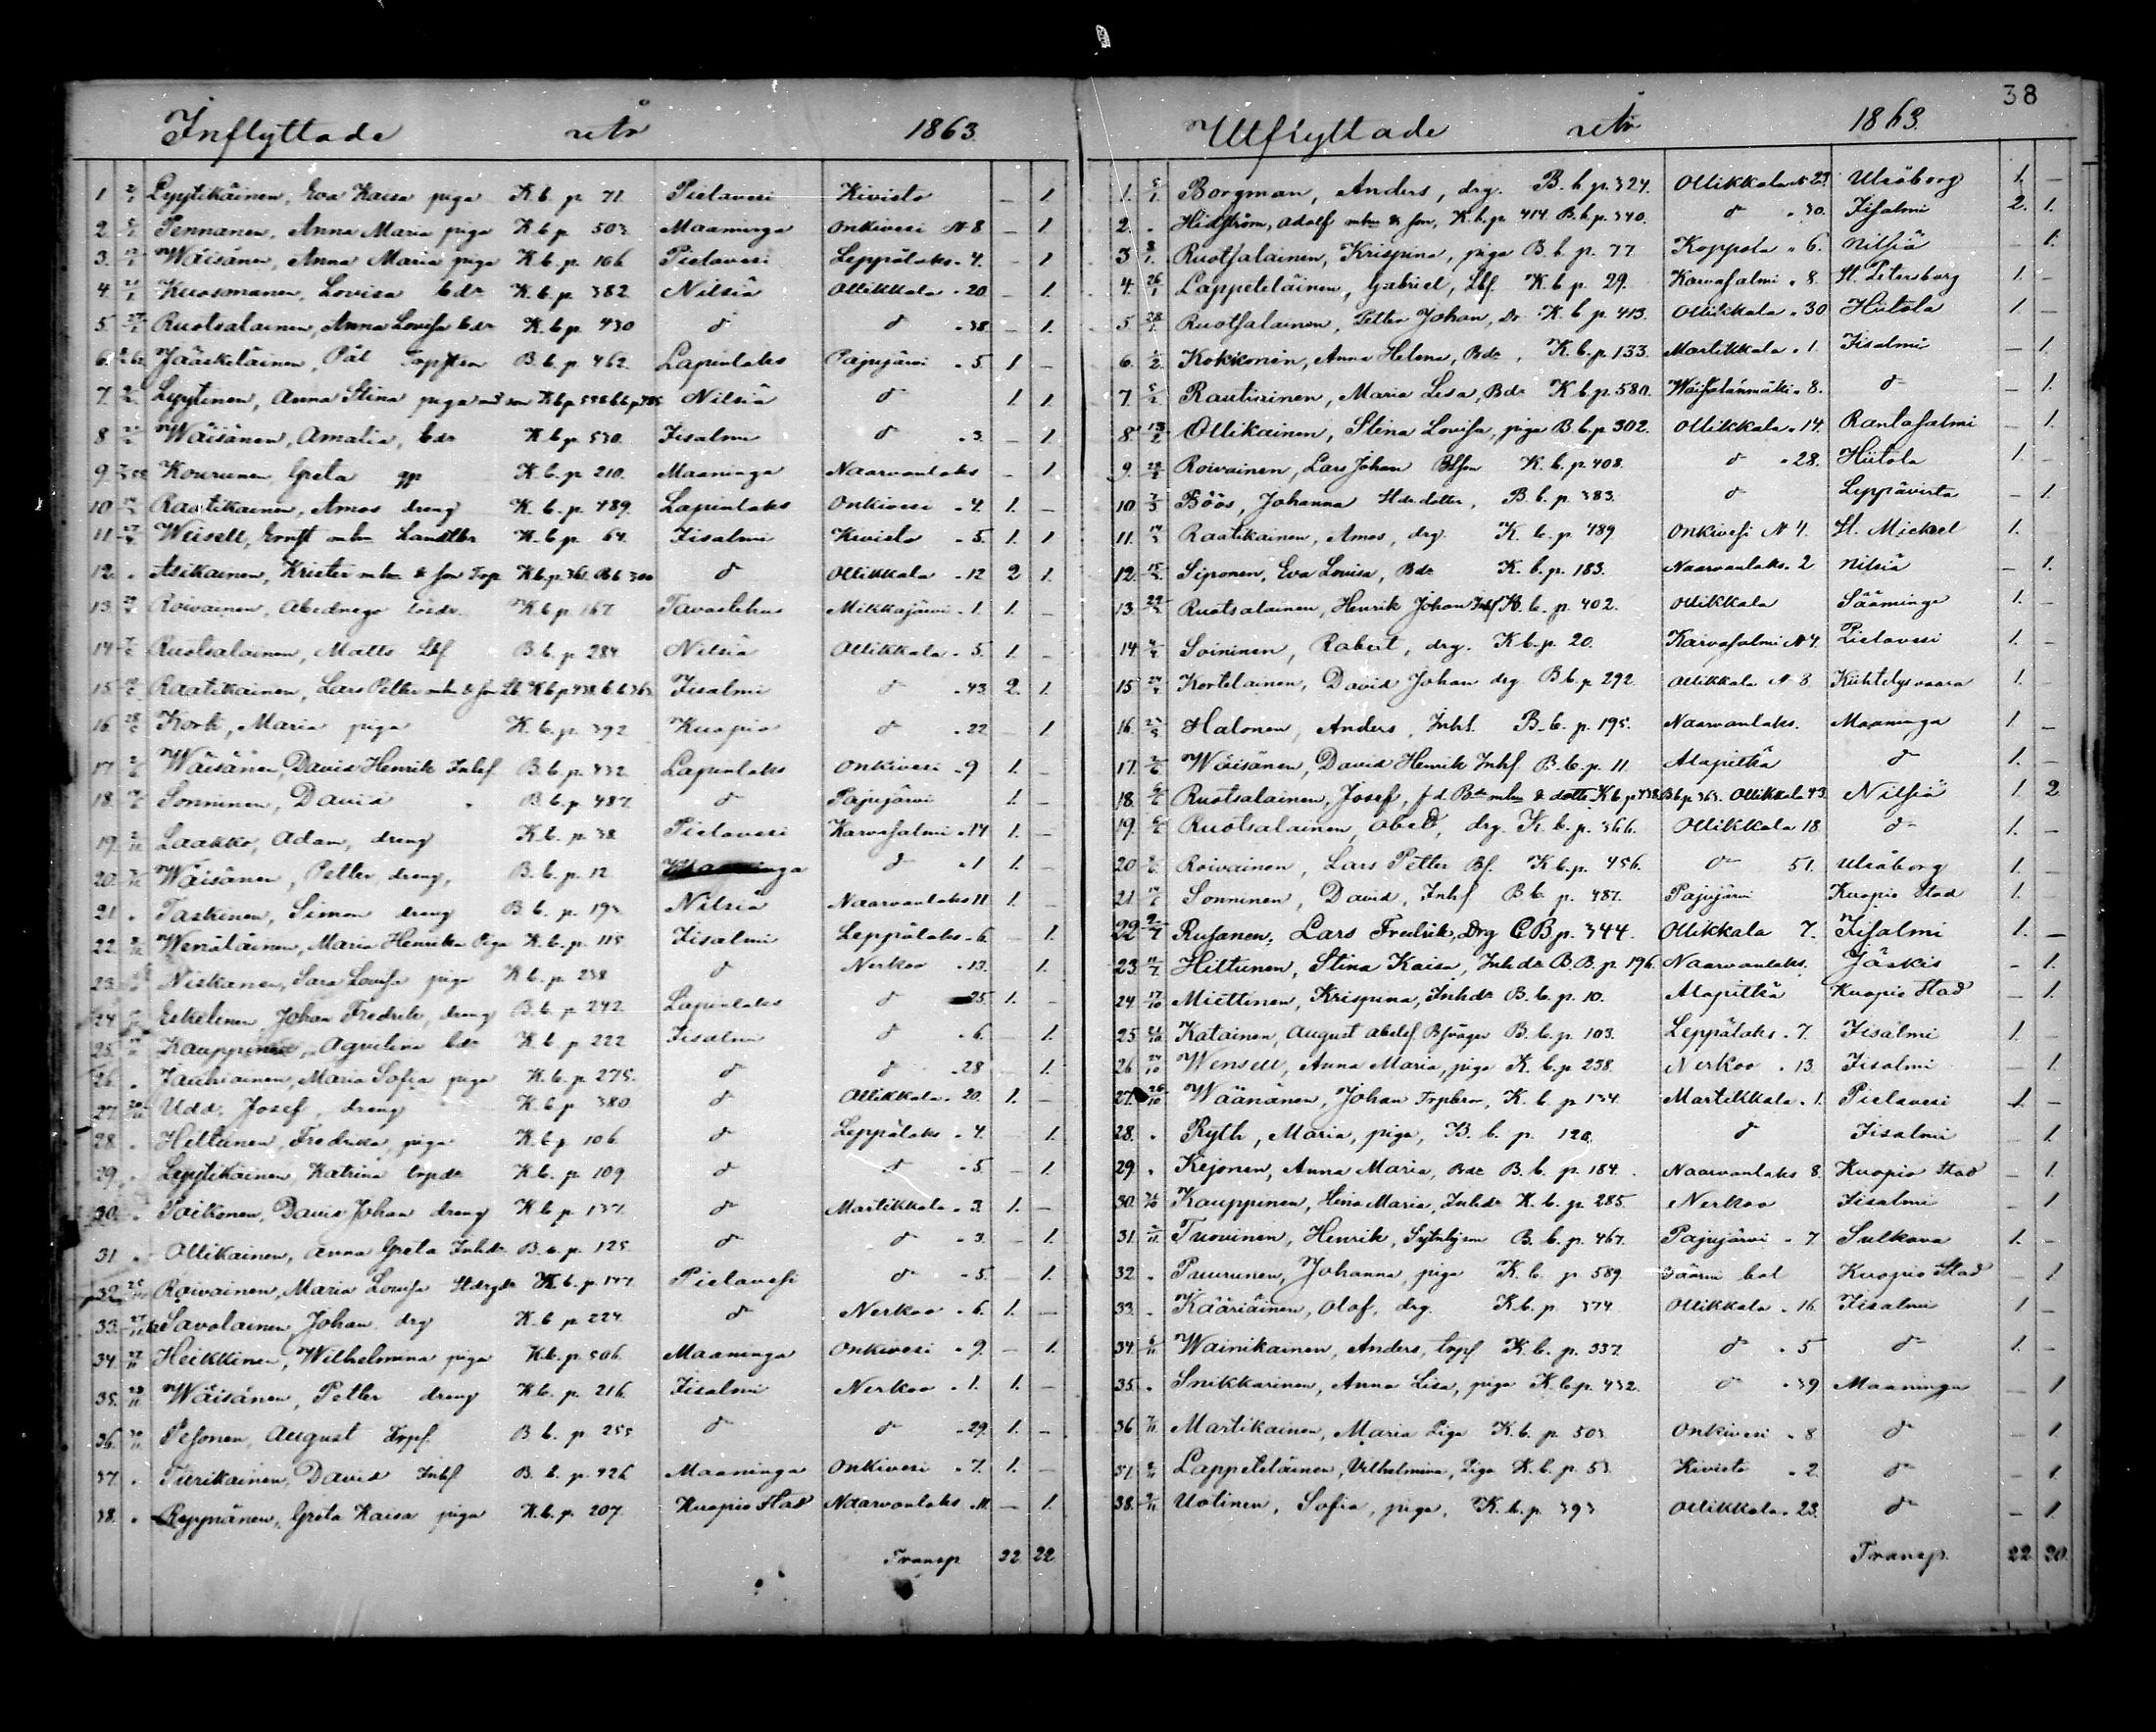 38
Inflyttade år 1863.
1 Lyytikäinen, Eva Kaisa piga K.b. p. 71. Pielavesi Kivisto – 1.
2. Pennanen, Anna Maria piga K.b. p. 503. Maaninga Onkivesi N 8 – 1.
3. Wäisänen, Anna Maria piga K.b. p. 106 Pielavesi Leppälaks " 4. – 1
4. Kuosmanen, Lovisa bdr K.b. p. 382. Nilsiä Ollikkala " 20 – 1.
5. Ruotsalainen, Anna Lovisa bdr K.b. p. 430 d:o d:o " 38. – 1.
6. Jääskeläinen, Pål B.b. p. 462. Lapinlaks Pajujärvi " 5. 1 –
7. Anna Stina piga Nilsiä d:o 1. 1.
8 Wäisänen, Amalia, bdr K.b. p. 530. Iisalmi d:o " 3. – 1.
9. Kourunen, Greta K.b. p. 210. Maaninga Naarvanlaks – 1.
10. Raatikainen, Amos dreng K.b. p. 489. Lapinlaks Onkivesi " 4. 1. –
11. Weisell, Ernst K.b. p. 64. Iisalmi Kivisto " 5. 1. 1
12. " Asikainen, Krister d:o Ollikkala " 12 2 1.
13. Roivainen, Abednego K.b. p. 167. Tavastehus Mikkajärvi " 1. 1. –
14. Ruotsalainen, Matts B.b. p. 284. Nilsiä Ollikkala " 5. 1. –
15. Raatikainen, Lars Petter Iisalmi d:o " 43. 2. 1.
16. Kork, Maria piga K.b. p. 392 Kuopio d:o " 22 1.
17. Wäisänen, David Henrik Inhf. B.b. p. 432. Lapinlaks Onkivesi " 9 1. –
18. Sonninen, David " B.b. p. 487. d:o Pajujärvi 1. –
19. Laakko, Adam, dreng K.b. p. 38 Pielavesi Karvasalmi " 14 1. –
20. Wäisänen, Petter, dreng, B.b. p. 12 d:o " 1 1. –
21. " Taskinen, Simon dreng B.b. p. 195. Nilsiä Naarvanlaks 11. 1. –
22. Wenäläinen, Maria Henrika Piga K.b. p. 115. Iisalmi Leppälaks " 6. – 1.
23. Niskanen, Sara Lovisa piga K.b. p. 238 d:o Nerkoo " 13. 1.
24. Eskelinen Johan Fredrik, dreng B.b. p. 242. Lapinlaks d:o 25. 1. –
25. Kauppinen, Agvelina bdr K.b. p. 222 Iisalmi d:o " 6. – 1.
26. " Jauhiainen, Maria Sofia piga K.b. p. 275. d:o d:o " 28 – 1.
27. Udd, Josef, dreng K.b. p. 380 d:o Ollikkala " 20. 1. –
28. " Hiltunen, Fredrika, piga K.b. p. 106 d:o Leppälaks " 4. 1.
29. " Katrina K.b. p. 109 d:o d:o " 5. – 1.
30. " Toikonen, David Johan dreng K.b. p. 137. d:o Martikkala " 3. 1. –
31. " Ollikainen, Anna Greta Inhdr B.b. p. 125. d:o d:o " 3. – 1.
32. Roivainen, Maria Lovisa K.b. p. 147. Pielavesi d:o " 5. – 1.
33. Savolainen, Johan drg K.b. p. 224. d:o Nerkoo " 6. 1. –
34. Heikkinen, Wilhelmina piga K.b. p. 506. Maaninga Onkivesi " 9. – 1.
35. Wäisänen, Petter dreng K.b. p. 216. Iisalmi Nerkoo " 1. 1. –
36. Pesonen, August Torpf. B.b. p. 255 d:o d:o " 29. 1. –
37. " Tiirikainen, David Inhf B.b. p. 426 Maaninga Onkivesi " 7. 1. –
38. " Ryynänen, Greta Kaisa piga K.b. p. 207. Kuopio Stad Naarvanlaks " 11. – 1.
Transp. 22 22
Utflyttade år 1863.
1. Borgman, Anders, drg. B.b. p. 324. Ollikkala N 29. Uleåborg 1. –
2. " Hidström, Adolf K.b. p. 414. B.b. p. 340. d:o " 30. Iisalmi 2. 1.
3 Ruotsalainen, Krispina, piga B.b. p. 77 Koppola " 6. Nilsiä 1.
4. Lappeteläinen, Gabriel, Lbf. K.b. p. 29. Karvasalmi " 8. St. Petersburg 1. –
5. Ruotsalainen, Petter Johan, Dr K.b. p. 413. Ollikkala " 30 Hiitola 1. –
6. Kokkonen, Anna Helena, Bdr, K.b. p. 133. Martikkala " 1. Iisalmi – 1.
7. Rautiainen, Maria Lisa, Bdr K.b. p. 580. Wäisälänmäki " 8. d:o – 1.
8. Ollikainen, Stina Lovisa, piga B.b. p. 302. Ollikkala " 14. Rantasalmi – 1.
9. Roivainen, Lars Johan K.b. p. 408. d:o " 28. Hiitola 1. –
10 Böös, Johanna B.b. p. 383. d:o Leppävirta – 1.
11. Raatikainen, Amos, drg. K.b. p. 489. Onkivesi N 4. St. Mickel 1.
12. Siponen, Eva Lovisa, Bdr K.b. p. 183. Naarvanlaks. 2 Nilsiä – 1.
13. Ruotsalainen, Henrik Johan Inhf K.b. p. 402. Ollikkala Sääminge 1. –
14. Soininen, Robert, drg. K.b. p. 20. Karvasalmi N 4. Pielavesi 1. –
15 Kortelainen, David Johan drg B.b. p. 292. Ollikkala N 8. Kiihtelysvaara 1. –
16. Halonen, Anders, Inhf. B.b. p. 195. Naarvanlaks. Maaninga 1. –
17. Wäisänen, David Henrik Inhf. B.b. p. 11. Alapitkä d:o 1. –
18. Ruotsalainen, Josef, K.b. p. 438. B.b. p. 363. Ollikkala 43. Nilsiä 1. 2
19. Ruotsalainen, Abel, drg. K.b. p. 366. Ollikkala 18. d:o 1. –
20. Roivainen, Lars Petter Bf. K.b. p. 456. d:o 51. Uleåborg 1. –
21. Sonninen, David, Inhf B.b. p. 487. Pajujärvi Kuopio Stad 1. –
22 Rusanen, Lars Fredrik, Drg C.B. p. 344. Ollikkala 7. Iisalmi 1. –
23. Hiltunen, Stina Kaisa, Inhdr B.B. p. 196. Naarvanlaks. Jäskis – 1.
24 Miettinen, Krispina, Inhdr B.b. p. 10. Alapitkä Kuopio Stad – 1.
25 Katainen, August B.b. p. 103. Leppälaks " 7. Iisalmi 1. –
26 Wensell, Anna Maria, piga K.b. p. 238. Nerkoo " 13. Iisalmi – 1.
27. Wäänänen, Johan K.b. p. 134. Martikkala " 1. Pielavesi 1 –
28. " Ryth, Maria, piga, B.b. p. 120. d:o Iisalmi 1.
29. " Kejonen, Anna Maria, Bdr B.b. p. 184. Naarvanlaks 8. Kuopio Stad – 1.
30. Kauppinen, Stina Maria, Inhdr K.b. p. 285. Nerkoo Iisalmi – 1
31. Tuovinen, Henrik, B.b. p. 467. Pajujärvi " 7. Sulkava 1. –
32. " Puurunen, Johanna, piga K.b. p. 589. Kuopio Stad – 1
33. " Kääriäinen, Olof, drg. K.b. p. 374. Ollikkala " 16. Iisalmi 1 –
34 Wainikainen, Anders, torpf K.b. p. 337. d:o " 5 d:o 1. –
35. " Snikkarinen, Anna Lisa, piga K.b. p. 432. d:o " 39 Maaninga – 1
36 Martikainen, Maria Piga K.b. p. 503 Onkivesi " 8. d:o – 1.
37. Lappeteläinen, Vilhelmina, Piga K.b. p. 53. Kivisto " 2. d:o – 1.
38. Uotinen, Sofia, piga, K.b. p. 393 Ollikkala " 23. d:o – 1.
Transp. 22. 20.